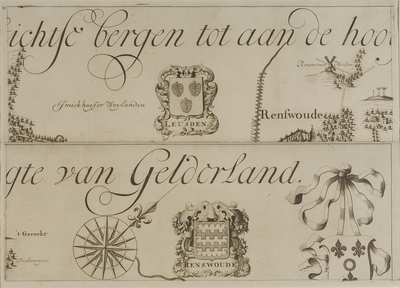 ichtse bergen tot aan de hoo
LEUSDEN
Renswoude
gte van Gelderland.
't Gerecht
RENSWOUDE